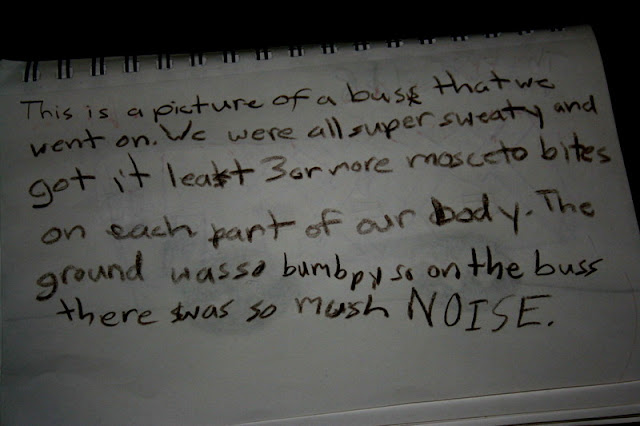 This is a picture of a buss that we
went on. We were all super sweaty and
got it least 3 or more mosceto bites
on each part of our body. The
ground was so bumbpy so on the buss
there was so mush NOISE.